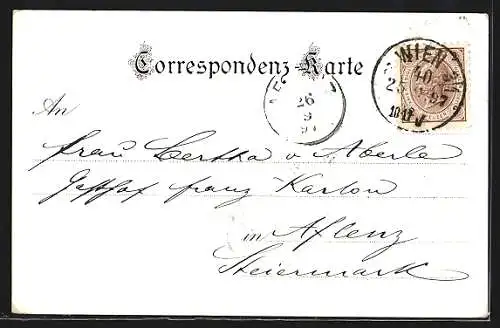 Correspondenz-Karte
WIEN
40
25
97
26
9
97
An
Frau Bertha v. Aberle
Gasthof Franz Karlon
in Aflenz
Steiermark